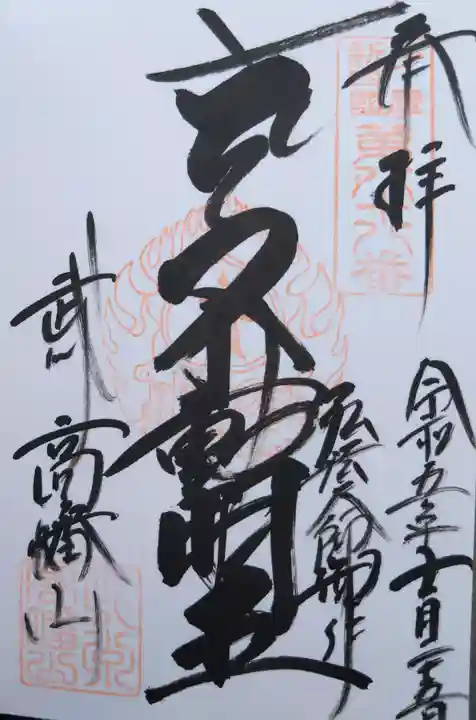 奉拝
令和五年十一月二十五日
弘法大師御作
不動明王
武州
高幡山